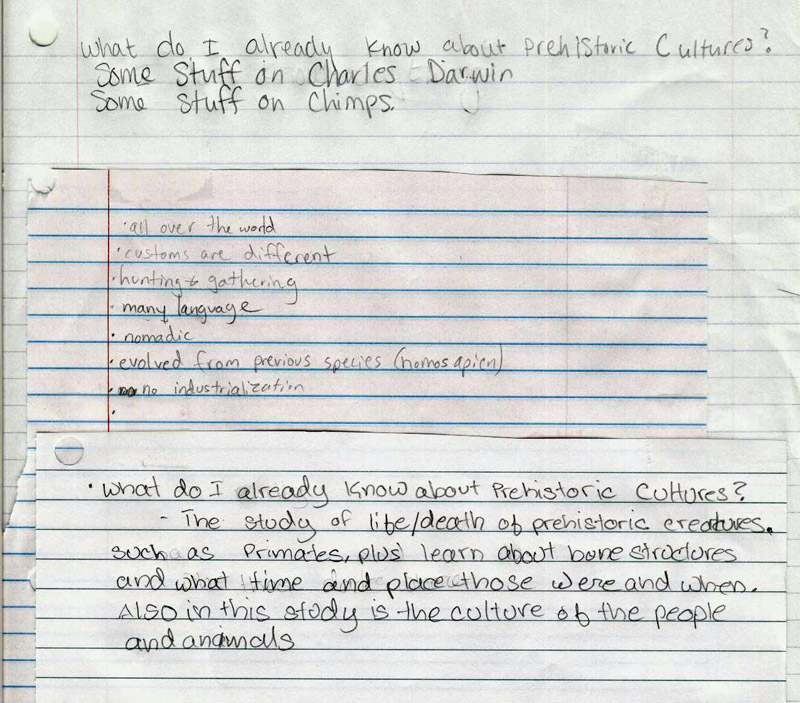 What do I already know about Prehistoric Cultures?
Some Stuff on Charles Darwin
Some stuff on Chimps.
• all over the world
• customs are different
• hunting & gathering
• many language
• nomadic
• evolved from previous species (homosapien)
• no industrialization
•
• What do I already know about Prehistoric Cultures?
- The study of life/death of prehistoric creatures.
such as Primates, plus learn about bone structures
and what time and place those were and when.
Also in this study is the culture of the people
and animals